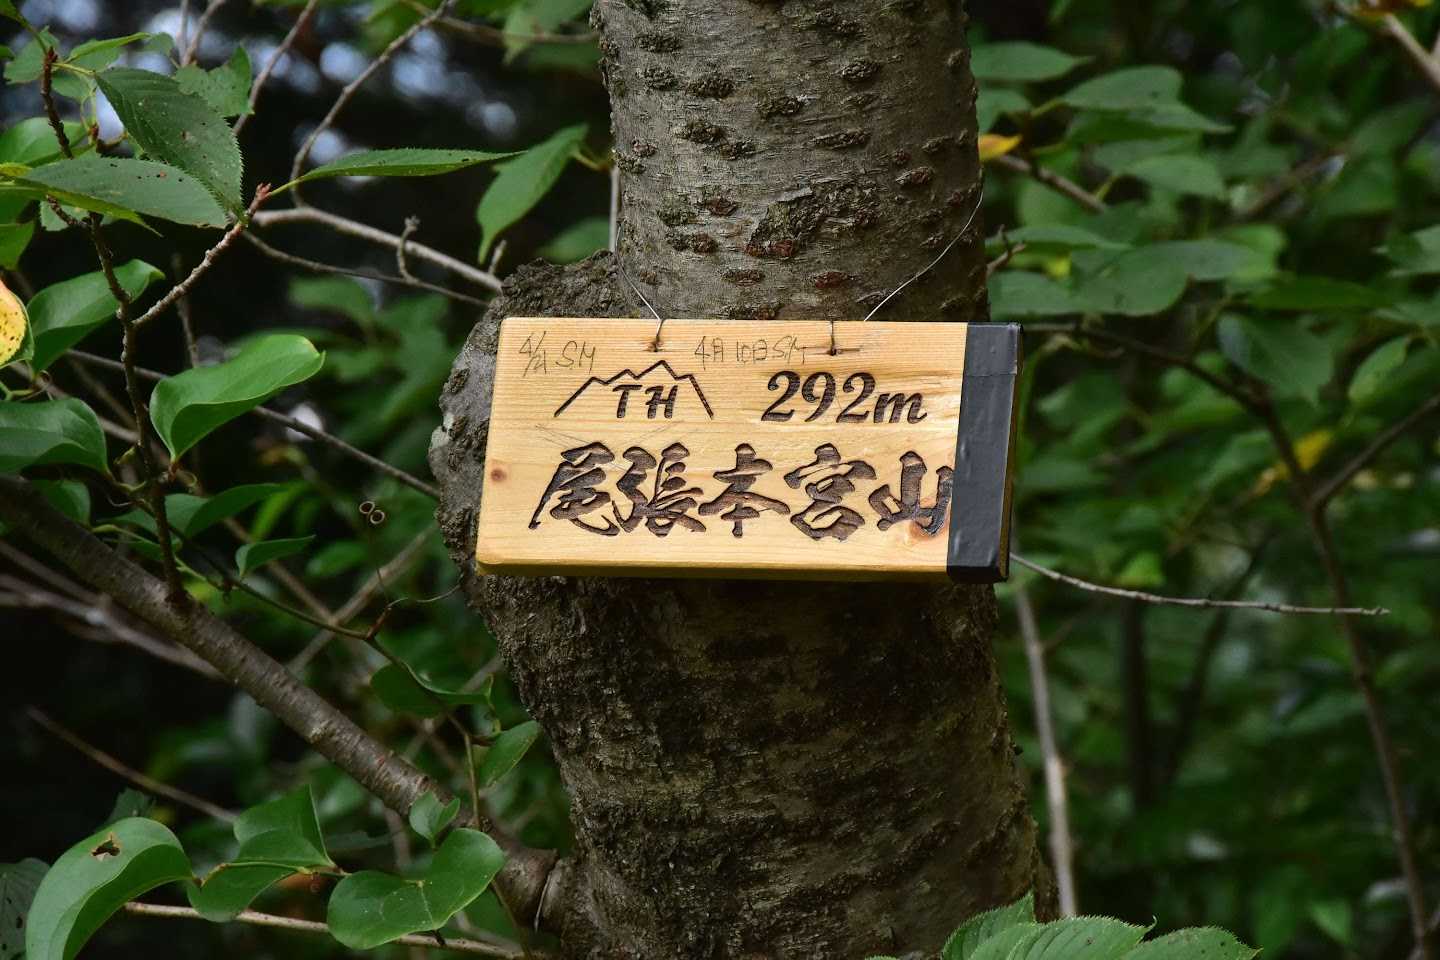 4/21 S.M 4月10日 S.M
TH 292m
尾張本宮山